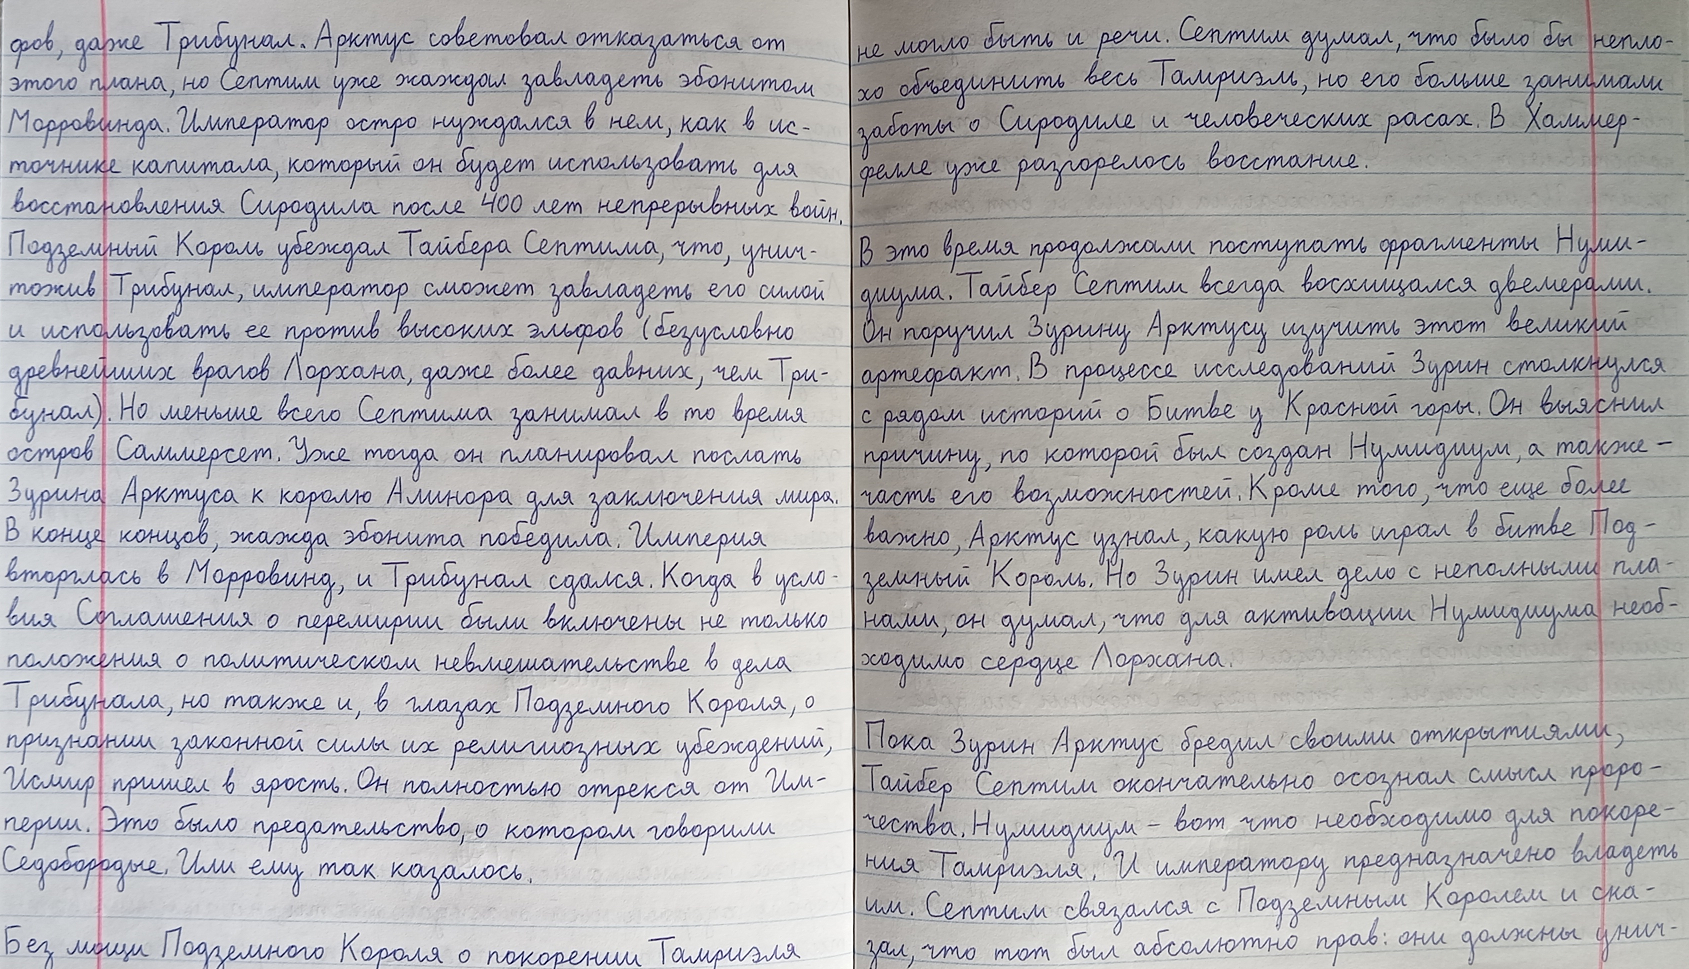 фов, даже Трибунал. Арктус советовал отказаться от
этого плана, но Септим уже жаждал завладеть эбонитом
Морровинда. Император остро нуждался в нем, как в ис-
точнике капитала, который он будет использовать для
восстановления Сиродила после 400 лет непрерывных войн.
Подземный Король убеждал Тайбера Септима, что, унич-
тожив Трибунал, император сможет завладеть его силой
и использовать ее против высоких эльфов (безусловно
древнейших врагов Лорхана, даже более давних, чем Три-
бунал). Но меньше всего Септима занимал в то время
остров Саммерсет. Уже тогда он планировал послать
Зурина Арктуса к королю Алинора для заключения мира.
В конце концов, жажда эбонита победила. Империя
вторглась в Морровинд, и Трибунал сдался. Когда в усло-
вия Соглашения о перемирии были включены не только
положения о политическом невмешательстве в дела
Трибунала, но также и, в глазах Подземного Короля, о
признании законной силы их религиозных убеждений,
Исмир пришел в ярость. Он полностью отрекся от Им-
перии. Это было предательство, о котором говорили
Седобородые. Или ему так казалось.
Без мощи Подземного Короля о покорении Тамриэля
не могло быть и речи. Септим думал, что было бы непло-
хо объединить весь Тамриэль, но его больше занимали
заботы о Сиродиле и человеческих расах. В Хаммер-
фелле уже разгорелось восстание.
В это время продолжали поступать фрагменты Нуми-
диума. Тайбер Септим всегда восхищался двемерами.
Он поручил Зурину Арктусу изучить этот великий
артефакт. В процессе исследований Зурин столкнулся
с рядом историй о Битве у Красной горы. Он выяснил
причину, по которой был создан Нумидиум, а также –
часть его возможностей. Кроме того, что еще более
важно, Арктус узнал, какую роль играл в битве Под-
земный Король. Но Зурин имел дело с неполными пла-
нами, он думал, что для активации Нумидиума необ-
ходимо сердце Лорхана.
Пока Зурин Арктус бредил своими открытиями,
Тайбер Септим окончательно осознал смысл проро-
чества. Нумидиум – вот что необходимо для покоре-
ния Тамриэля. И императору предназначено владеть
им. Септим связался с Подземным Королем и ска-
зал, что тот был абсолютно прав: они должны унич-